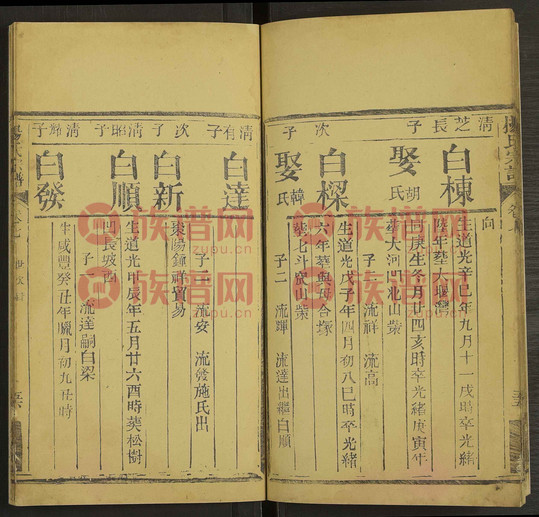 清芝長子
白棟
生道光辛巳年九月十一戌時卒光緒
年葬大堰灣
向
娶胡氏
庚生冬月廿四亥時卒光緒庚寅年
葬大河
北山
子二 流祥 流高
次子
白樑
生道光戊子年四月初八巳時卒光緒
六年葬與
合塚
娶韓氏
葬北斗
山
子二 流輝 流達出繼白順
清有子
白達
子二 流安 流發施氏出
次子
白新
東陽鎮祥貿易
清昭子
白順
生道光甲辰年五月廿六酉時葬松樹
長坡
子一 流達嗣白梁
清耀子
白發
生咸豐癸丑年臘月初九丑時
族谱网
族谱网
族谱网
族谱网